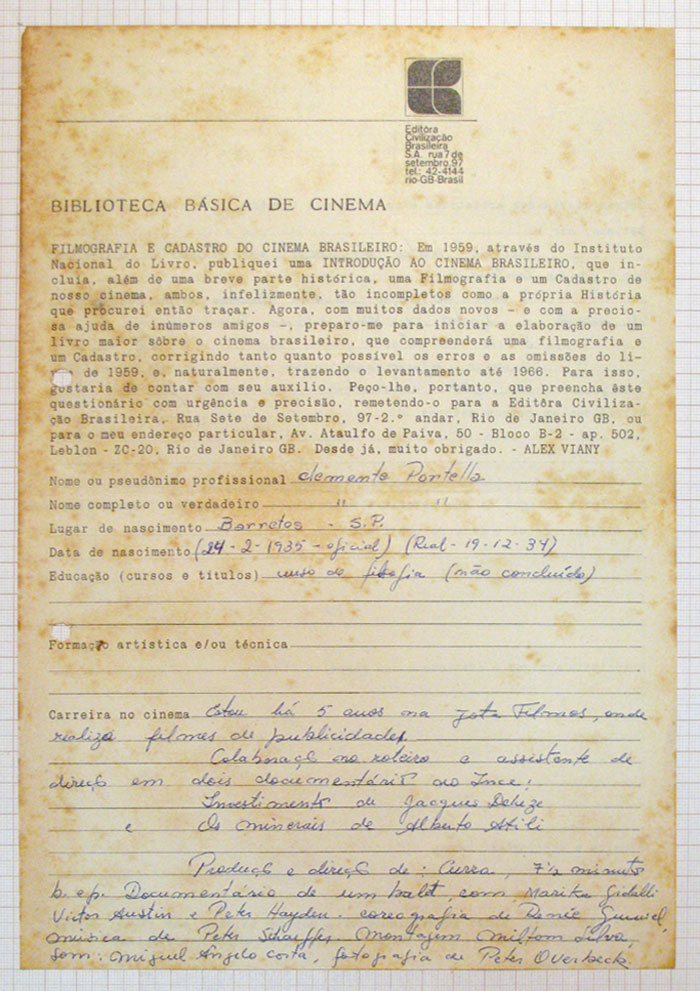 Editôra
Civilização
Brasileira
S.A. rua 7 de
setembro, 97
tel.: 42-4144
rio-GB-Brasil
BIBLIOTECA BÁSICA DE CINEMA
FILMOGRAFIA E CADASTRO DO CINEMA BRASILEIRO: Em 1959, através do Instituto
Nacional do Livro, publiquei uma INTRODUÇÃO AO CINEMA BRASILEIRO, que in-
cluia, além de uma breve parte histórica, uma Filmografia e um Cadastro de
nosso cinema, ambos, infelizmente, tão incompletos como a própria História
que procurei então traçar. Agora, com muitos dados novos - e com a precio-
sa ajuda de inúmeros amigos -, preparo-me para iniciar a elaboração de um
livro maior sôbre o cinema brasileiro, que compreenderá uma filmografia e
um Cadastro, corrigindo tanto quanto possível os erros e as omissões do li-
de 1959, e, naturalmente, trazendo o levantamento até 1966. Para isso,
gostaria de contar com seu auxílio. Peço-lhe, portanto, que preencha êste
questionário com urgência e precisão, remetendo-o para a Editôra Civiliza-
ção Brasileira, Rua Sete de Setembro, 97-2.º andar, Rio de Janeiro GB, ou
para o meu endereço particular, Av. Ataulfo de Paiva, 50 - Bloco B-2 - ap. 502,
Leblon - ZC-20, Rio de Janeiro GB. Desde já, muito obrigado. - ALEX VIANY
Nome ou pseudônimo profissional Clemente Portella
Nome completo ou verdadeiro " "
Lugar de nascimento Barretos - S.P.
Data de nascimento (24-2-1935 - oficial) (Real - 19-12-34)
Educação (cursos e títulos) curso de filosofia (não concluído)
Formação artística e/ou técnica
Carreira no cinema Estou há 5 anos na Jota Filmes, onde
realizo filmes de publicidades.
Colaboração no roteiro e assistente de
direção em dois documentários ao Ince:
Investimento de Jacques Deheze
e Os minerais de Alberto Attili
Produção e direção de: Curra, 7½ minutos
b. e p. Documentário de um balet, com Marika Gidalli
Victor Austin e Peter Hayden - coreografia de Renée
música de Peter Schaeffer Montagem Milton Silva,
som: Miguel Angelo Costa, fotografia de Peter Overbeck